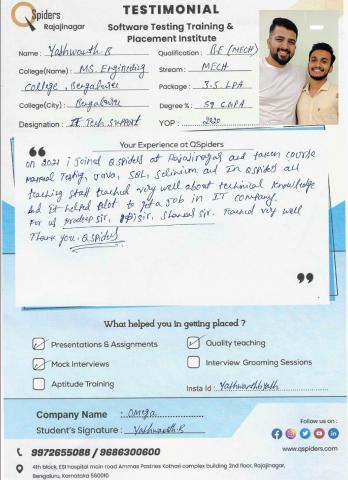 QSpiders
Rajajinagar
TESTIMONIAL
Software Testing Training &
Placement Institute
Name : Yashwanth B
Qualification : B.E (MECH)
College(Name) : MS. Engineering
College, Bengaluru
Stream : MECH
Package : 3.5 LPA
College(City) : Bengaluru
Degree % : 59 CGPA
Designation : IT Tech Support
YOP : 2020
Your Experience at QSpiders
on 2021 i joined QSpiders at Rajajinagar and taken course
manual Testing, Java, SQL, Selinium and In QSpiders all
teaching staff teached very well about technical knowledge
and It helped alot to get a job in IT company.
For us pradeep sir, sir, sir. Teached very well
Thank you. QSpiders
What helped you in getting placed ?
Presentations & Assignments
Quality teaching
Mock Interviews
Interview Grooming Sessions
Aptitude Training
Insta Id : Yashwanthbyash
Company Name : Omega
Student's Signature : Yashwanth.B
Follow us on :
9972655088 / 9686300600
www.qspiders.com
4th block, ESI hospital main road Ammas Pastries Kothari complex building 2nd floor, Rajajinagar,
Bengaluru, Karnataka 560010